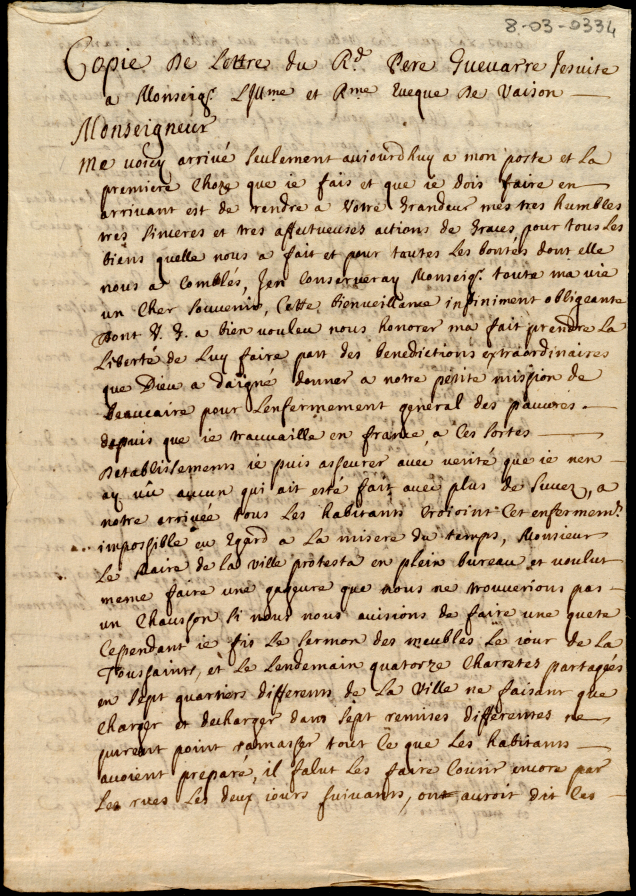 8-03-0334
Copie De Lettre du Rd Pere Guevarre Jesuite
a Monseigr L'Illme et Rme Eveque De Vaison
Monseigneur
Me voicy arrivé seulement aujourdhuy a mon poste et la
premiere choze que ie fais et que ie dois faire en
arrivant est de rendre a Votre Grandeur mes tres humbles
tres sinceres et tres affectueuses actions de Graces pour tous les
biens quelle nous a fait et pour toutes les bontés dont elle
nous a comblés, Jen conserveray Monseigr toute ma vie
un cher souvenir, Cette bienveillance infiniment obligeante
Dont V. G. a bien vouleu nous honorer ma fait prendre la
liberté de luy faire part des benedictions extraordinaires
que Dieu a daigné donner a notre petite mission de
Beaucaire pour lenfermement general des pauvres
depuis que ie travaille en france a ces sortes
Detablissements ie puis asseurer avec verité que ie nen
ay vû aucun qui ait esté fait avec plus de succez, a
notre arrivée tous les habitants croioint cet enfermemt
impossible eu egard a la misere du temps, Monsieur
le Maire de la ville protesta en plein bureau et voulut
meme faire une gageure que nous ne trouverions pas
un chausson si nous nous avisions de faire une quete
Cependant ie fis le sermon des meubles le iour de la
Toussaints, et le lendemain quatorze charretes partagées
en sept quartiers differents de la ville ne faisant que
charger et decharger dans sept remises differentes ne
purent point ramasser tout ce que les habitants
avoient preparé, il falut les faire courir encore par
les rues les deux iours suivants, ont auroit dit ces